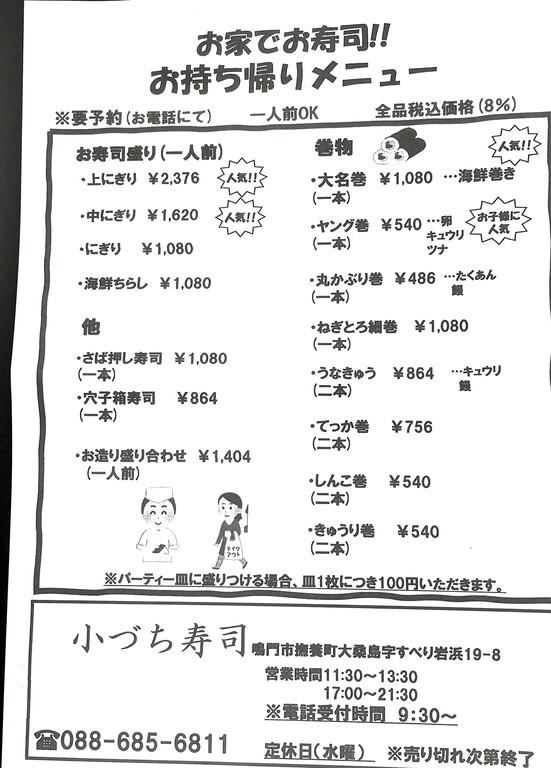 お家でお寿司!!
お持ち帰りメニュー
※要予約(お電話にて) 一人前OK 全品税込価格(8%)
お寿司盛り(一人前)
・上にぎり ¥2,376 人気!!
・中にぎり ¥1,620 人気!!
・にぎり ¥1,080
・海鮮ちらし ¥1,080
他
・さば押し寿司 ¥1,080
(一本)
・穴子箱寿司 ¥864
(一本)
・お造り盛り合わせ ¥1,404
(一人前)
テイク
アウト
巻物
人気!!
・大名巻 ¥1,080 …海鮮巻き
(一本)
・ヤング巻 ¥540 …卵
(一本)
キュウリ
ツナ
お子様に
人気
・丸かぶり巻 ¥486 …たくあん
(一本)
鰻
・ねぎとろ細巻 ¥1,080
(一本)
・うなきゅう ¥864 …キュウリ
(二本)
鰻
・てっか巻 ¥756
(二本)
・しんこ巻 ¥540
(二本)
・きゅうり巻 ¥540
(二本)
※パーティー皿に盛りつける場合、皿1枚につき100円いただきます。
小づち寿司 鳴門市撫養町大桑島字すべり岩浜19-8
営業時間11:30~13:30
17:00~21:30
※電話受付時間 9:30~
☎088-685-6811
定休日(水曜) ※売り切れ次第終了